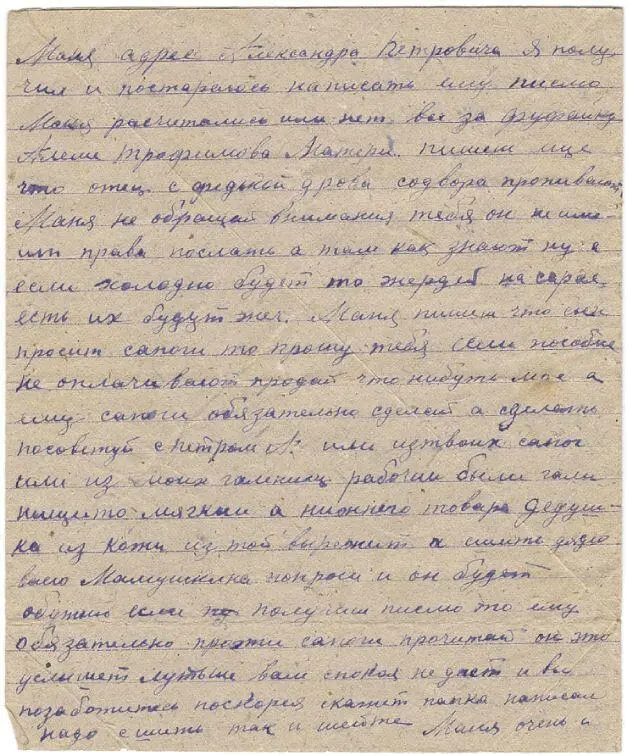 Маня адрес Александра Петровича я полу
чил и постараюсь написать ему писмо
Маня расчитались или нет вы за фуфайку
Трофимова Матери пишеш ище
что отец с федькой дрова содвора пропивают
Маня не обращай внимания тебя он не име
ит права послать а там как знают ну а
если холодно будет то жердей на сарае
есть их будут жеч. Маня пишеш что сын
просит сапоги то прошу тебя если пособие
не оплачивают продай что нибуть мое а
ему сапоги обязательно сделай а сделать
посоветуй с Петром А. или из твоих сапог
или из моих галениш рабочии были гали
нищито мягкии а нижнего товара дедуш-
ка из кожи из той вырежит и сшить дядю
васю Мамушкина попроси и он будет
если получиш писмо то ему
обязательно про эти сапоги прочитай он это
услышет лутьше вам спокоя не даст и вы
позаботитесь поскорея скажит папка написал
надо сшить так и шейте Маня очень